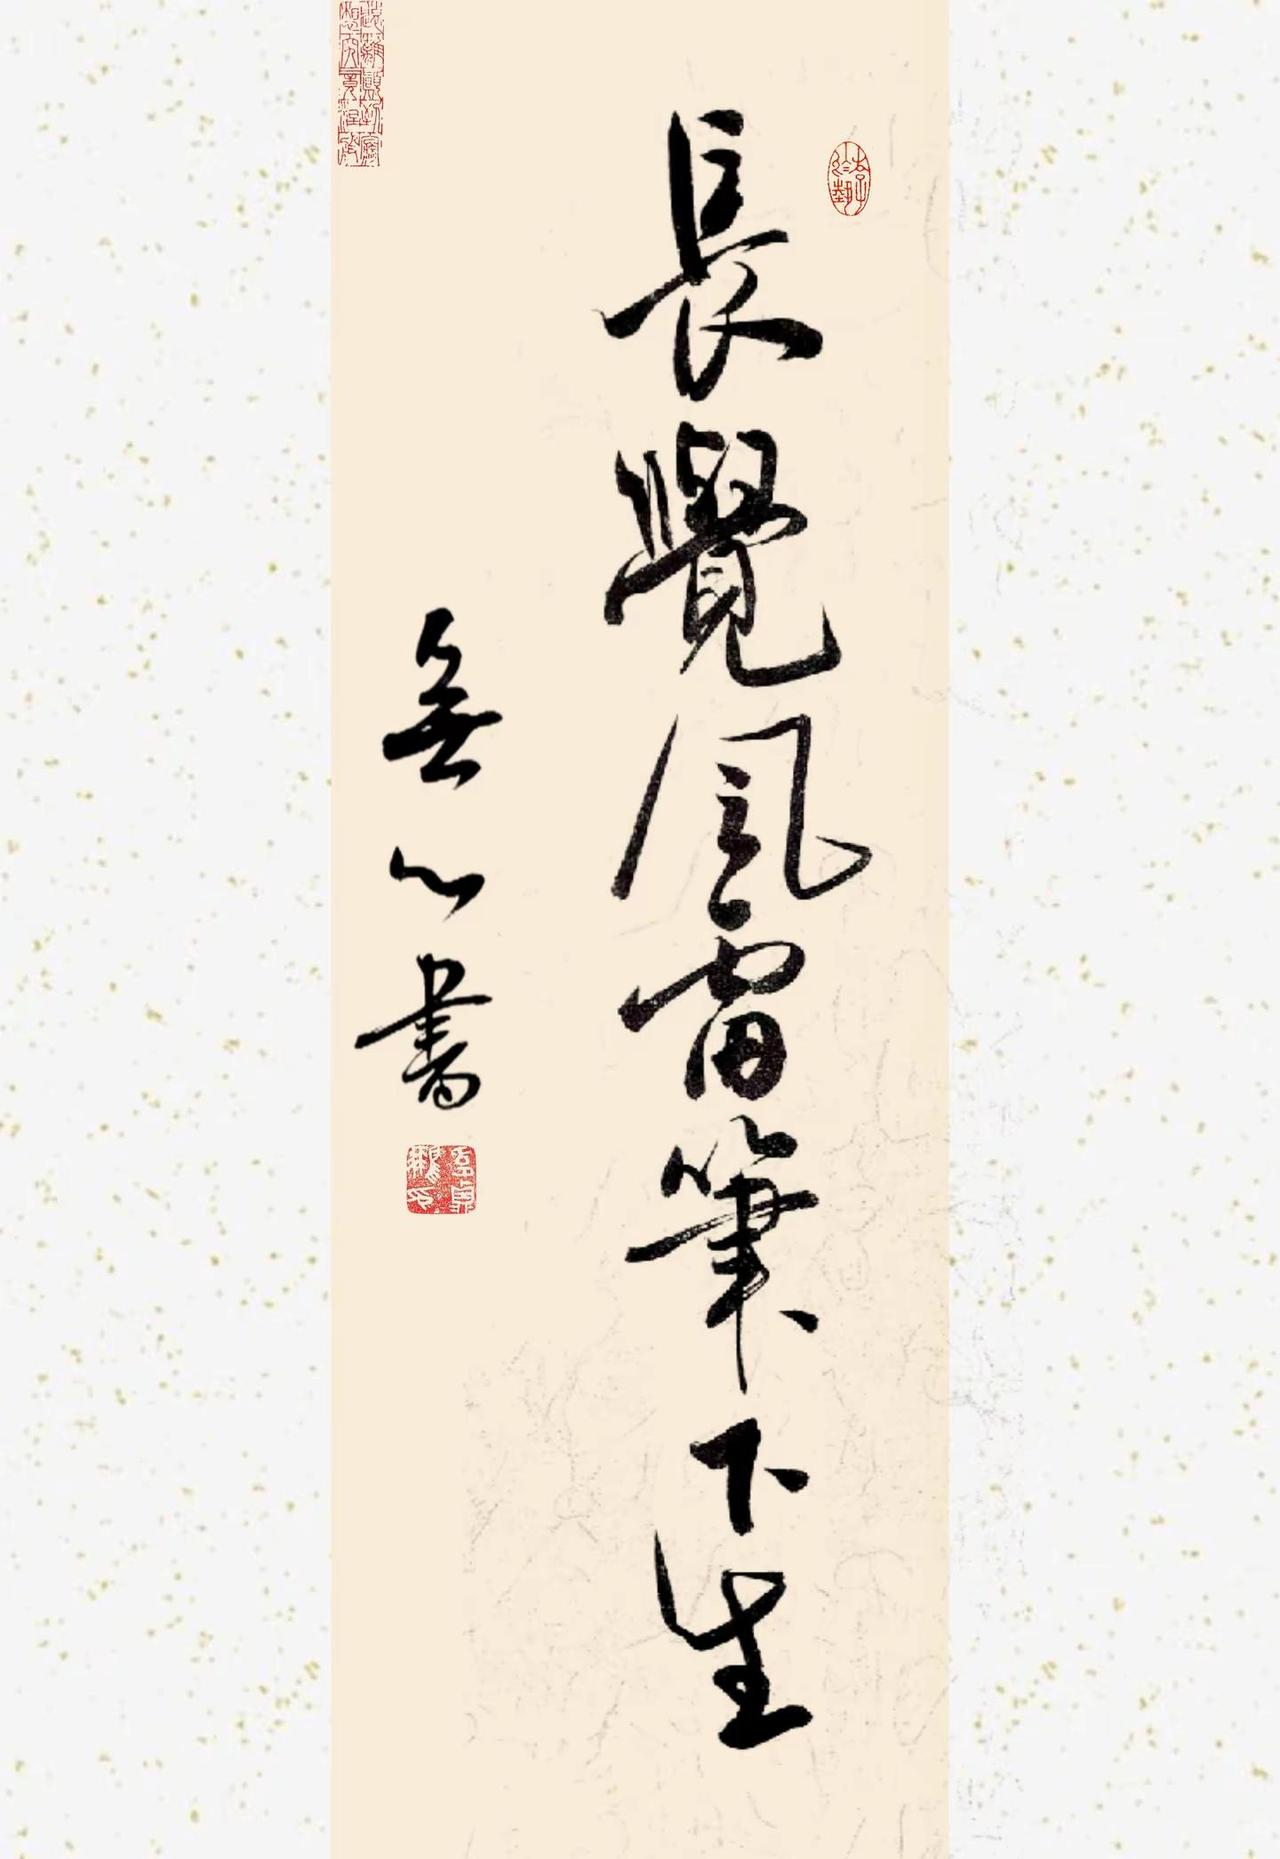 長覺風雷筆下生
無心書